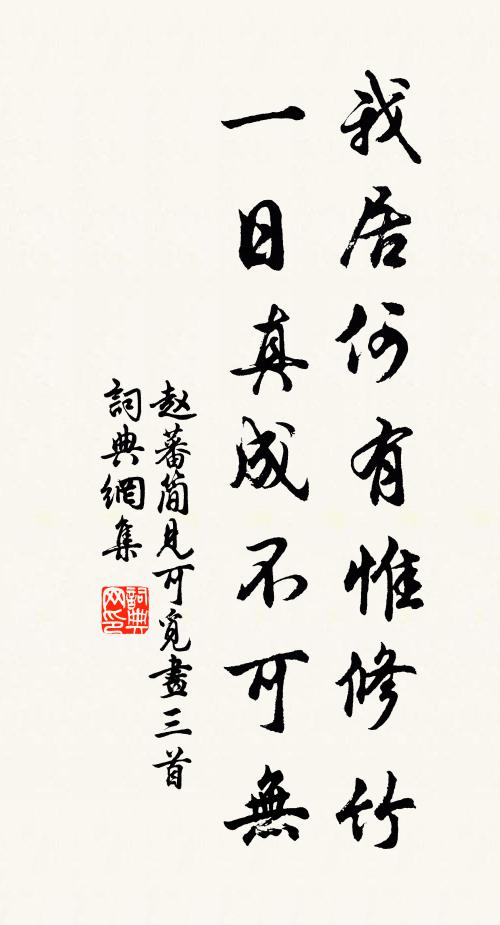 我居何有惟修竹
一日真成不可無
赵蕃简見可覓畫三首
詞典網集
詞典
网印